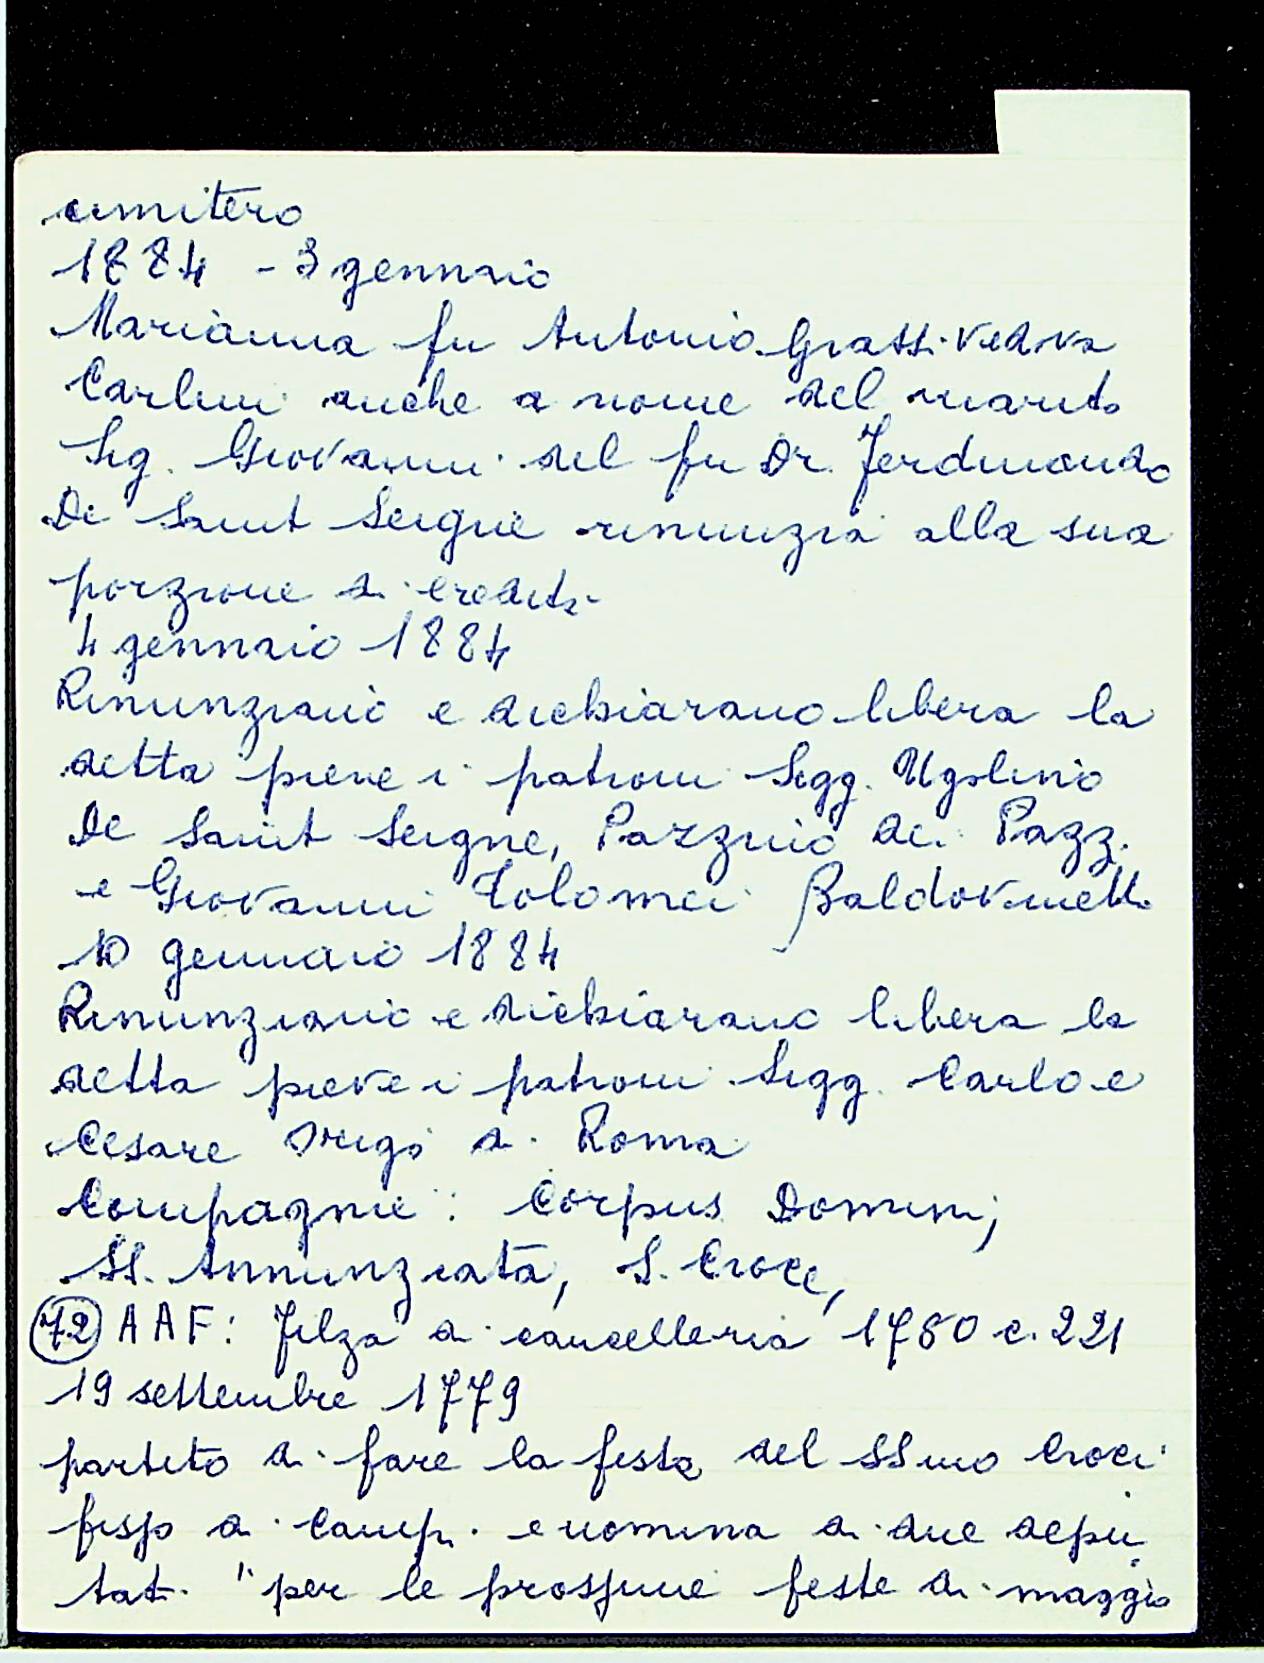 cimitero
1884 - 3 gennaio
Marianna fu Antonio Grassi vedva
Carlini anche a nome del marito
Sig. Giovanni del fu Dr. Ferdinando
De Saint Seigne rinunzia alla sua
porzione di eredità
4 gennaio 1884
Rinunziano e dichiarano libera la
detta pieve i patroni Sigg. Ugolino
De Saint Seigne, Pazzino de' Pazzi
e Giovanni Tolomei Baldovinetti
10 gennaio 1884
Rinunziano e dichiarano libera la
detta pieve i patroni Sigg. Carlo e
Cesare di Roma
Compagnie: Corpus Domini;
SS. Annunziata, S. Croce,
72 AAF: Filza di cancelleria 1780 c. 221
19 settembre 1779
partito di fare la festa del SSmo Croci
fisso di Camp. e nomina di due depu
tati "per le prossime feste di maggio